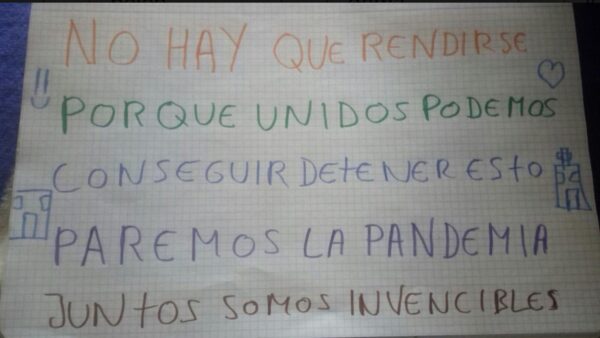 NO HAY QUE RENDIRSE
PORQUE UNIDOS PODEMOS
CONSEGUIR DETENER ESTO
PAREMOS LA PANDEMIA
JUNTOS SOMOS INVENCIBLES